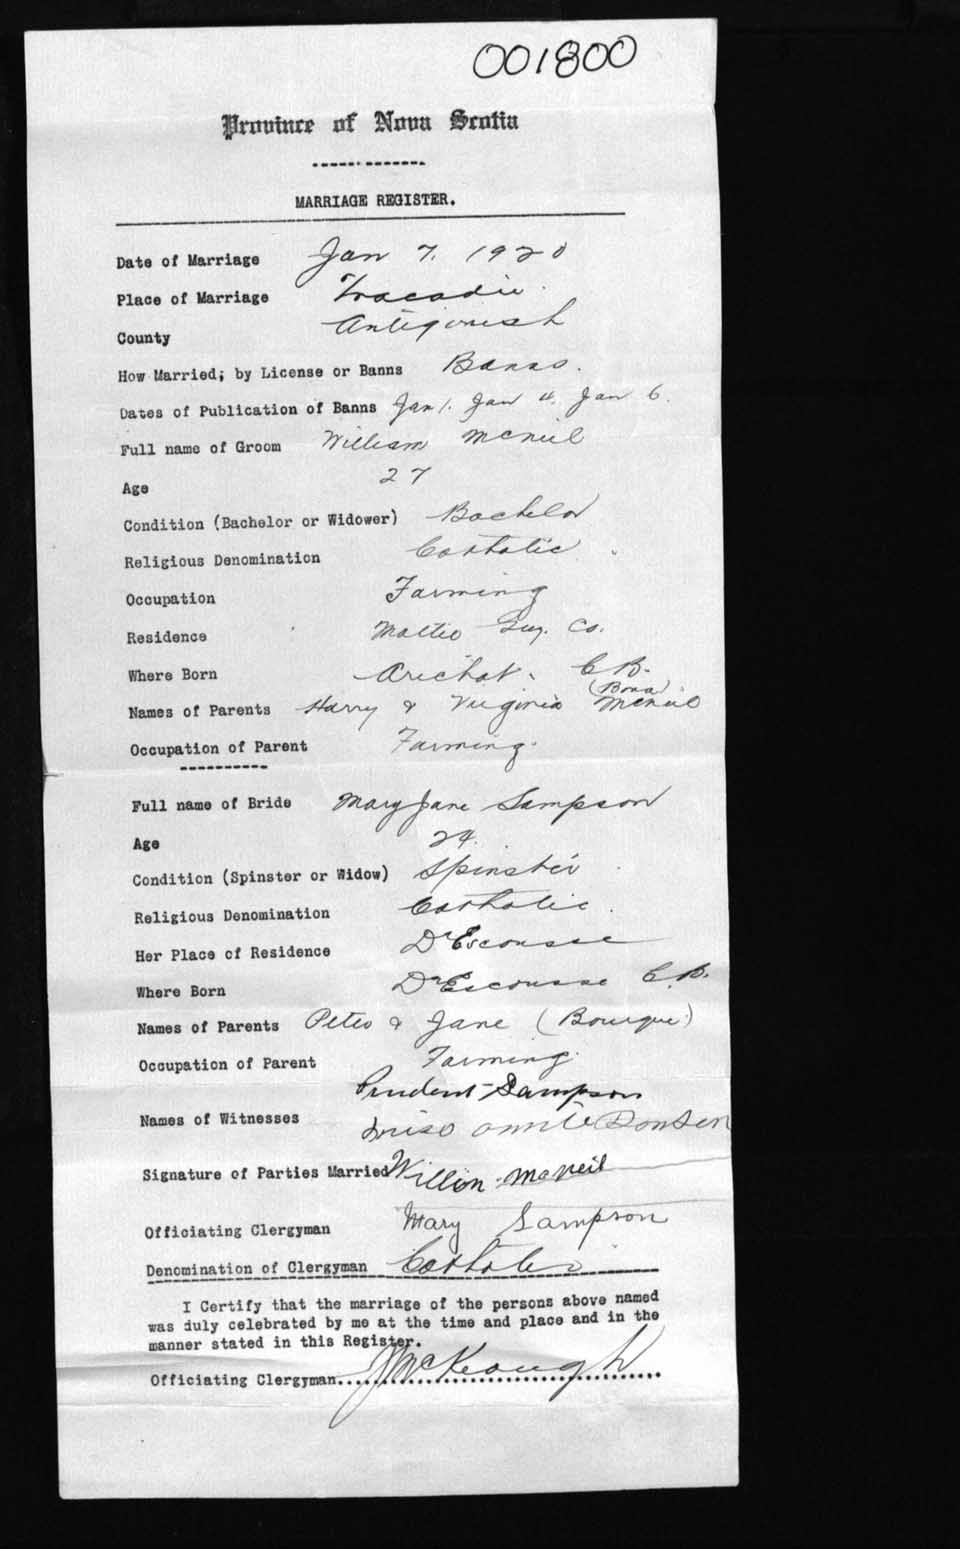 001800
Province of Nova Scotia
MARRIAGE REGISTER.
Date of Marriage Jan 7. 1920
Place of Marriage Tracadie.
County Antigonish
How Married; by License or Banns Banns.
Dates of Publication of Banns Jan 1. Jan 4. Jan 6.
Full name of Groom William McNeil
Age 27
Condition (Bachelor or Widower) Bachelor
Religious Denomination Catholic
Occupation Farming
Residence Guy. Co.
Where Born Arichat. C.B.
(Bona)
Names of Parents Harry & Virginia McNeil
Occupation of Parent Farming.
Full name of Bride Mary Jane Sampson
Age 24.
Condition (Spinster or Widow) Spinster
Religious Denomination Catholic.
Her Place of Residence D'Escousse
Where Born D'Escousse C.B.
Names of Parents Peter & Jane (Bourque)
Occupation of Parent Farming.
Prudent Sampson
Names of Witnesses Miss Annie
Signature of Parties Married McNeil
Officiating Clergyman Mary Sampson
Denomination of Clergyman Catholic
I Certify that the marriage of the persons above named
was duly celebrated by me at the time and place and in the
manner stated in this Register.
Officiating Clergyman J McKeough